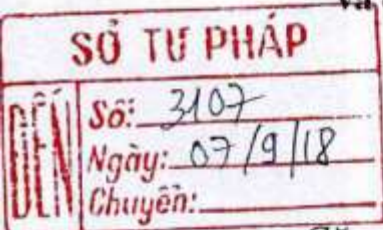 SỞ TƯ PHÁP
ĐẾN
Số: 3107
Ngày: 07/9/18
Chuyển: